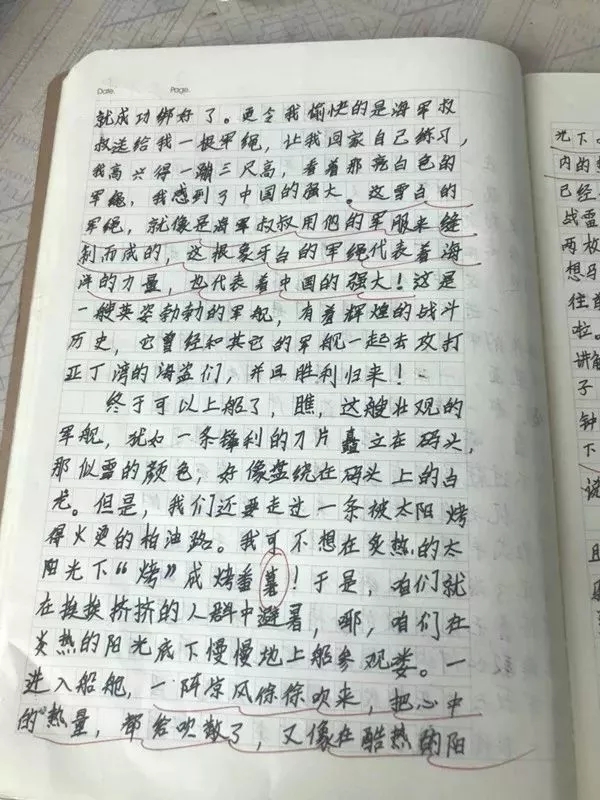 Date. Page.
就成功绑好了。更令我愉快的是海军叔
叔送给我一根军绳，让我回家自己练习，
我高兴得一蹦三尺高，看着那亮白色的
军绳，我感到了中国的强大。这雪白的
军绳，就像是海军叔叔用他的军服来缝
制而成的，这根象牙白的军绳代表着海
洋的力量，也代表着中国的强大！这是
一艘英姿勃勃的军舰，有着辉煌的战斗
历史，它曾经和其它的军舰一起去攻打
亚丁湾的海盗们，并且胜利归来！
终于可以上船了，瞧，这艘壮观的
军舰，犹如一条锋利的刀片矗立在码头，
那似雪的颜色，好像盘绕在码头上的白
龙。但是，我们还要走过一条被太阳烤
得火烫的柏油路。我可不想在炙热的太
阳光下“烤”成烤番薯！于是，咱们就
在挨挨挤挤的人群中避暑，耶，咱们在
炎热的阳光底下慢慢地上船参观喽。一
进入船舱，一阵凉风徐徐吹来，把心中
的热量，都给吹散了，又像在酷热的阳
光下
内的
已经
战雷
两枚
想马
往前
啦。
讲解
子
钟
下